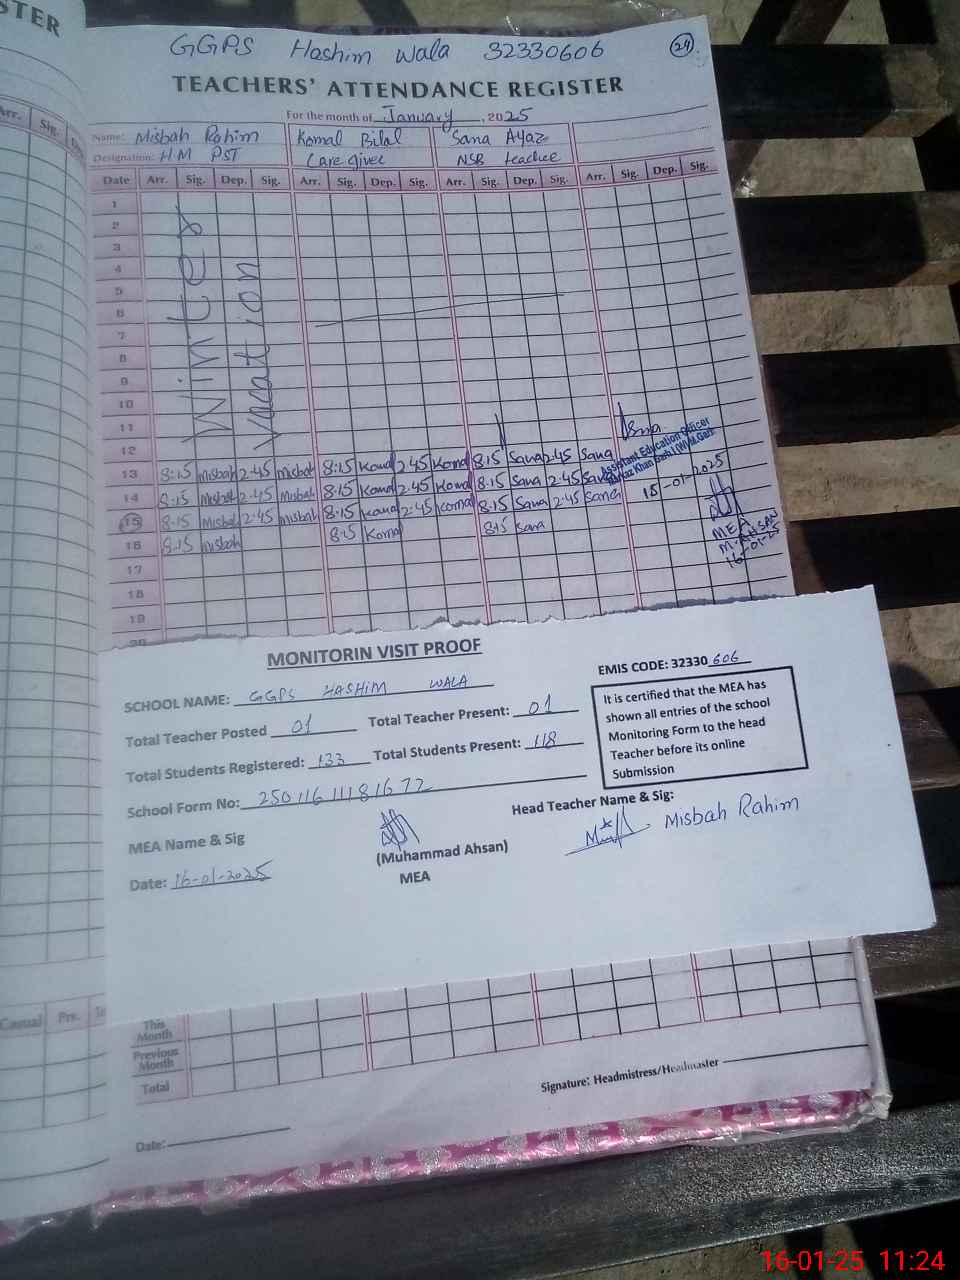 STER
Arr. Sig.
GGPS Hashim Wala 32330606
24
TEACHERS' ATTENDANCE REGISTER
For the month of January, 2025
Name: Misbah Rahim Komal Bilal Sana Ayaz
Designation: HM PST Care giver NSB teacher
Date Arr. Sig. Dep. Sig. Arr. Sig. Dep. Sig. Arr. Sig. Dep. Sig. Arr. Sig. Dep. Sig.
1
2
3
4
5
6
7
8
9
10
11
12
Winter
vacation
13 8:15 Misbah 2:45 Misbah 8:15 Komal 2:45 Komal 8:15 Sana 2:45 Sana
14 8:15 Misbah 2:45 Misbah 8:15 Komal 2:45 Komal 8:15 Sana 2:45 Sana
15 8:15 Misbah 2:45 Misbah 8:15 Komal 2:45 Komal 8:15 Sana 2:45 Sana
16 8:15 Misbah 8:15 Komal 8:15 Sana
17
18
19
20
Assistant Education Officer
15-01-2025
MEA
M. AHSAN
16-01-25
MONITORIN VISIT PROOF
EMIS CODE: 32330 606
SCHOOL NAME: GGPS HASHIM WALA
Total Teacher Posted 01 Total Teacher Present: 01
Total Students Registered: 133 Total Students Present: 118
School Form No: 25011611181672
It is certified that the MEA has
shown all entries of the school
Monitoring Form to the head
Teacher before its online
Submission
MEA Name & Sig
(Muhammad Ahsan)
MEA
Head Teacher Name & Sig:
Misbah Rahim
Date: 16-01-2025
Casual Prs.
This Month
Previous Month
Total
Signature: Headmistress/Headmaster
Date:
16-01-25 11:24